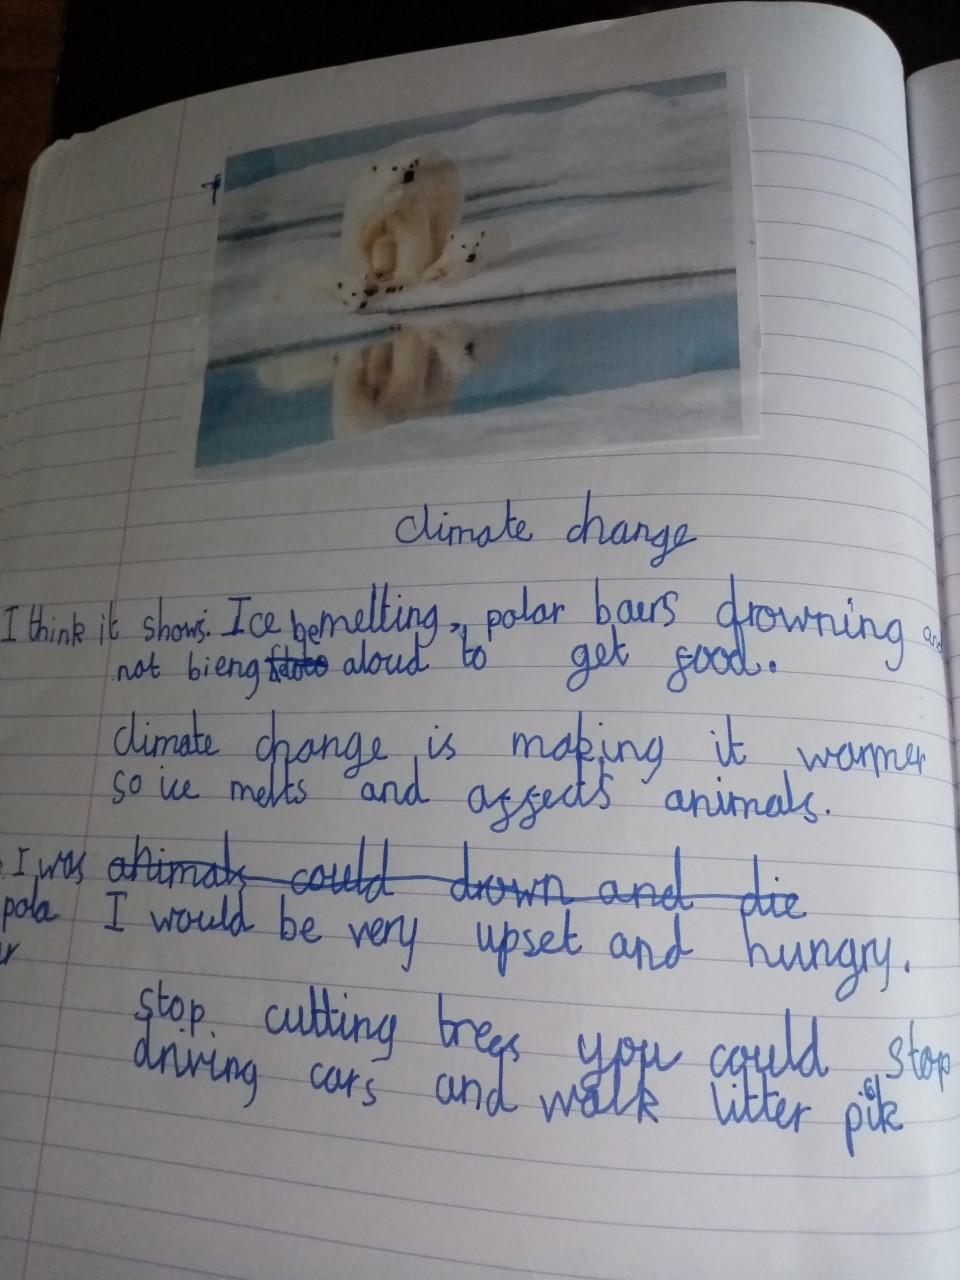 climate change
I think it shows. Ice be melting, polar baers drowning and
not bieng aloud to get food.
climate change is making it warmer
so ice melts and affects animals.
I was animals could drown and die
pola I would be very upset and hungry.
r
stop cutting trees you could stop
driving cars and walk litter pik